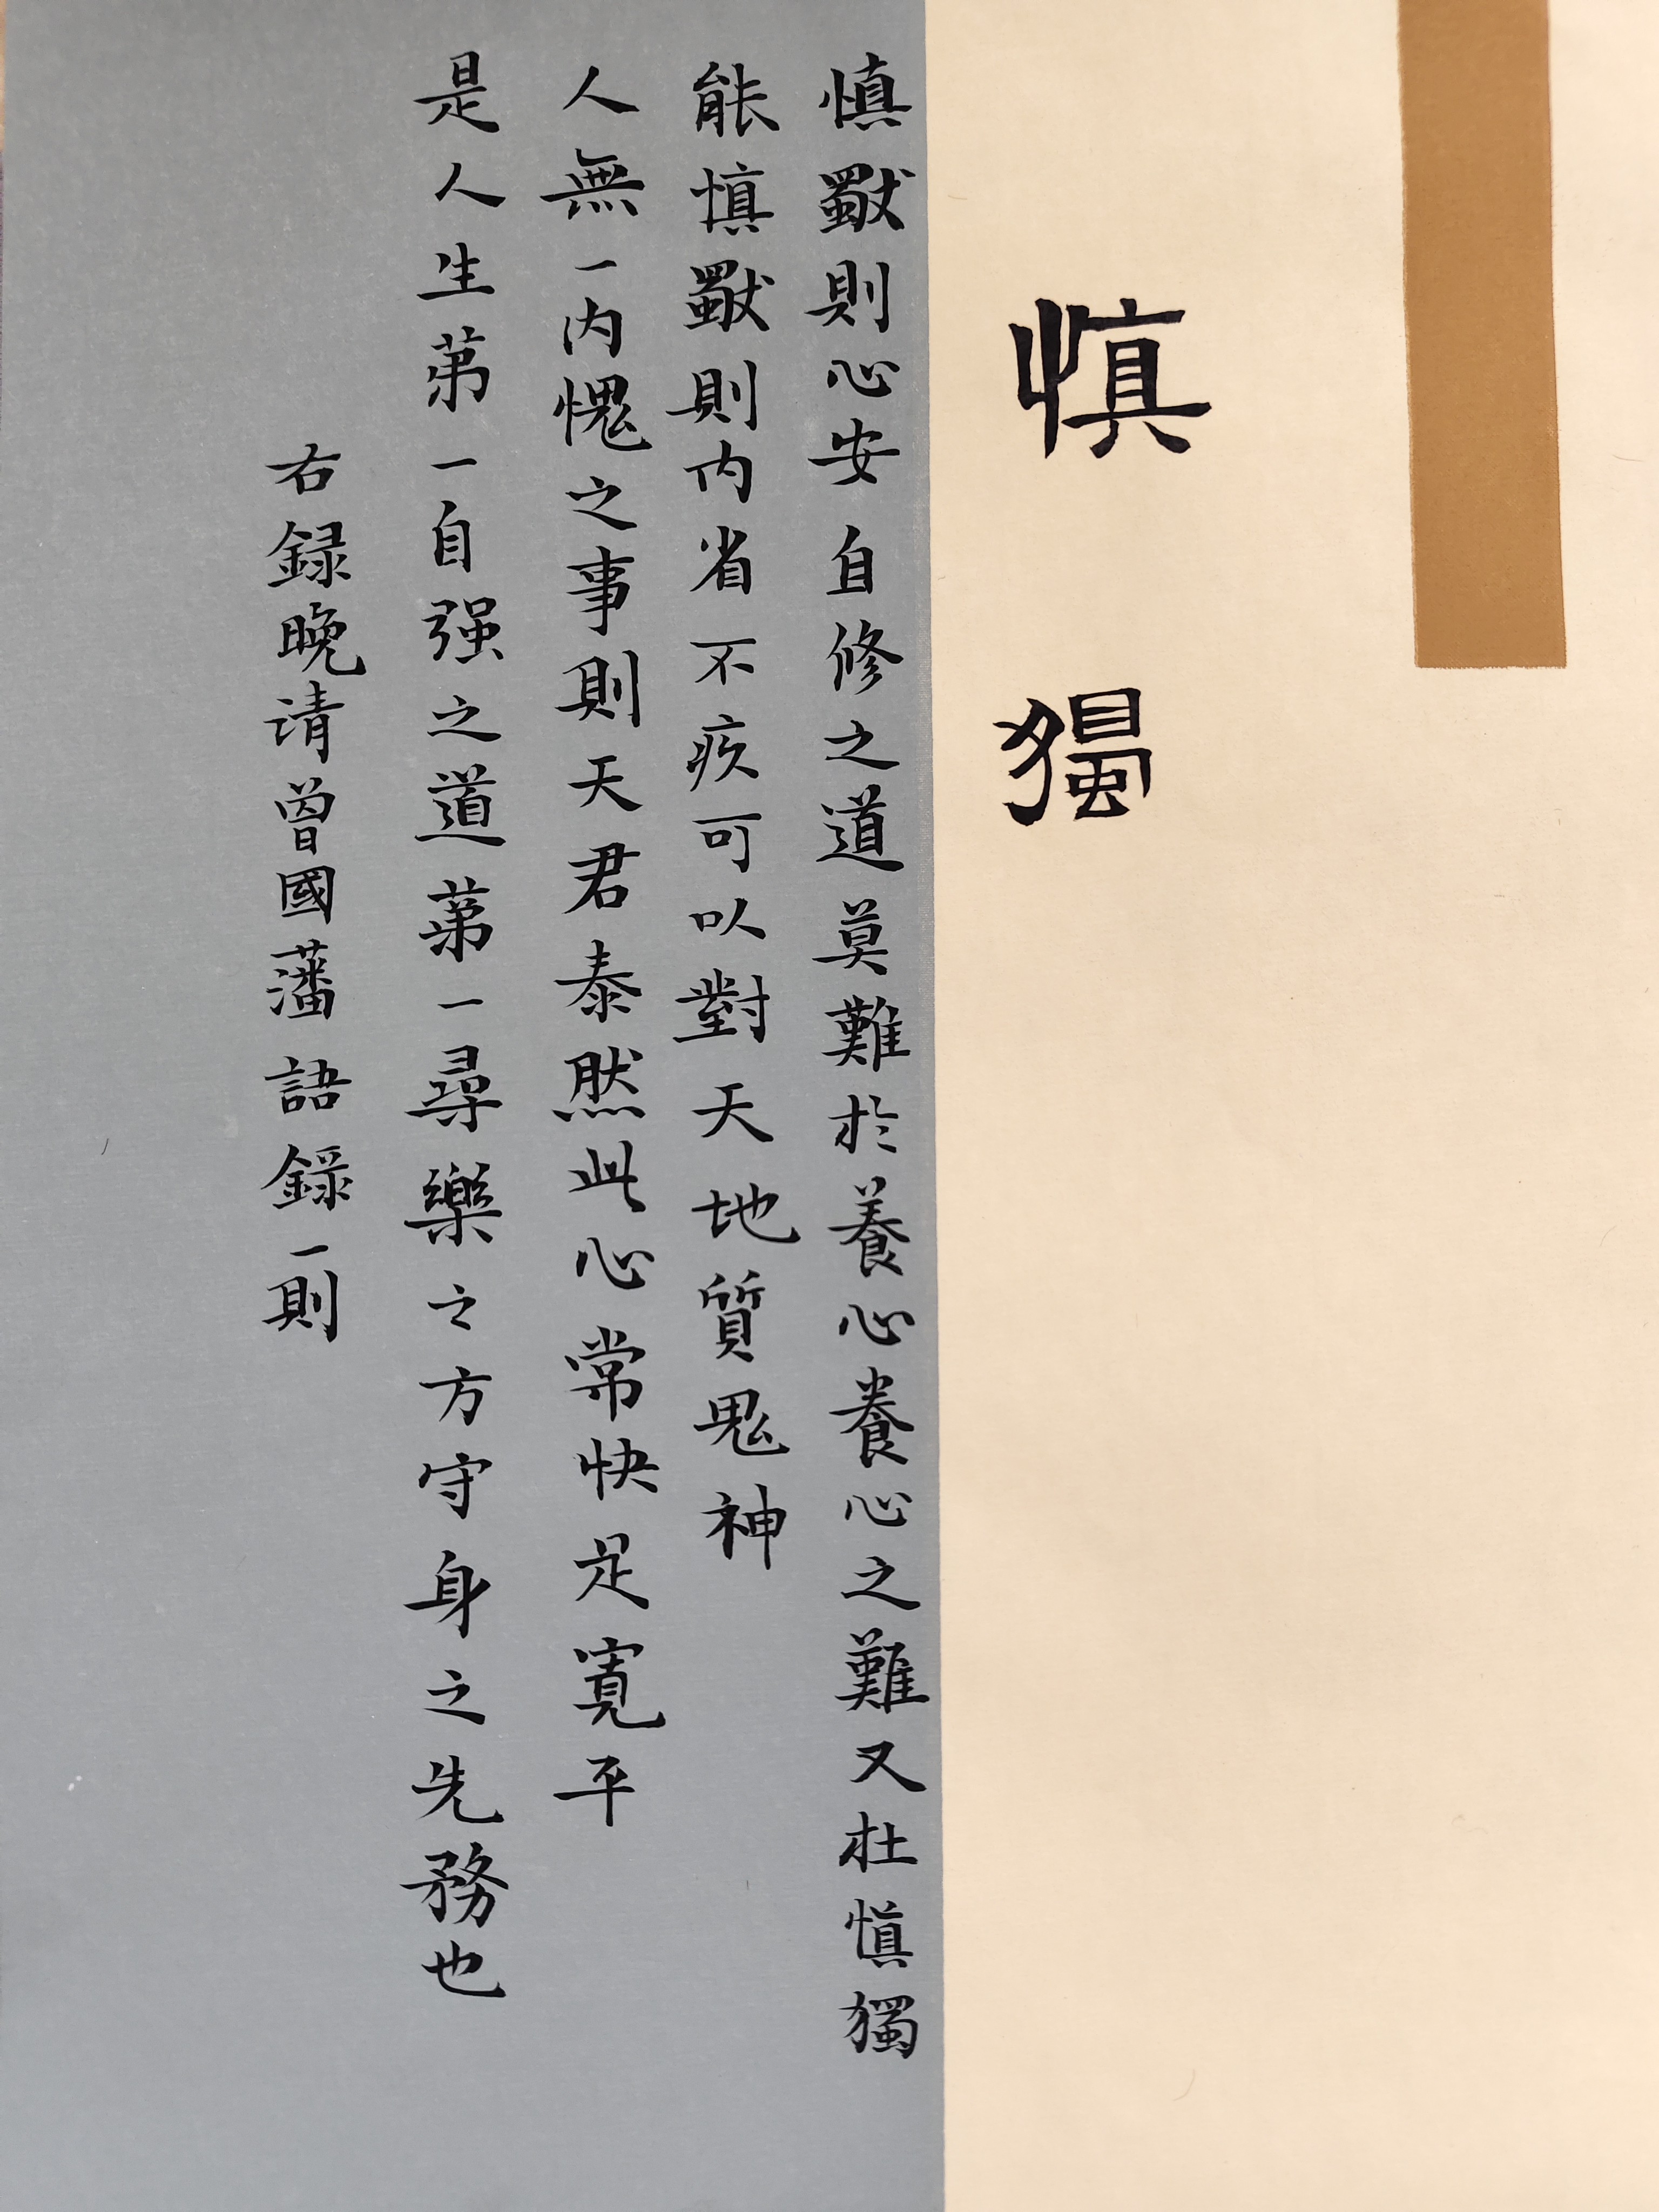 慎獨
慎獨則心安自修之道莫難於養心養心之難又在慎獨
能慎獨則内省不疚可以對天地質鬼神
人無一内愧之事則天君泰然此心常快足寬平
是人生第一自强之道第一尋樂之方守身之先務也
右録晚请曾國藩語錄一則